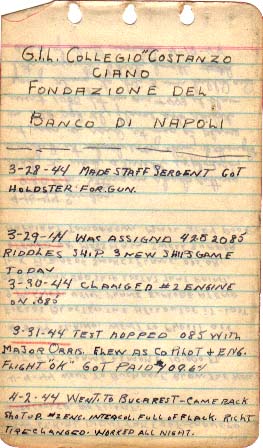 G.I.L. COLLEGIO "COSTANZO
CIANO
FONDAZIONE DEL
BANCO DI NAPOLI
3-28-44 MADE STAFF SERGENT GOT
HOLDSTER FOR GUN.
3-29-44 WAS ASSIGND 4252085
RIDDLES SHIP 3 NEW SHIPS CAME
TODAY
3-30-44 CLANGED #2 ENGINE
ON .085
3-31-44 TEST HOPPED 085 WITH
MAJOR FLEW AS COPILOT & ENG.
FLIGHT "OK" GOT PAID $109.64
4-2-44 WENT TO BUCAREST - CAME BACK
SHOT UP. #2 ENG. INTERCOL. FULL OF FLACK. RIGHT
TIRE CHANGED. WORKED ALL NIGHT.